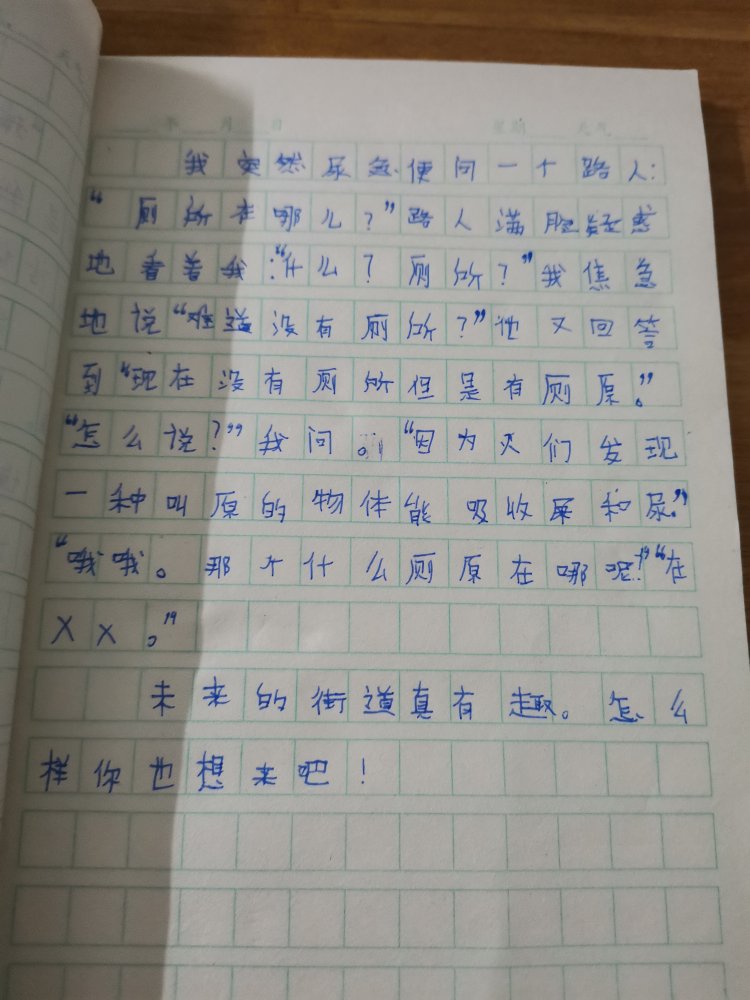 年 月 日 星期 天气
我突然尿急便问一个路人:
“厕所在哪儿?”路人满脸疑惑
地看着我:“什么?厕所?”我焦急
地说“难道没有厕所?”他又回答
到“现在没有厕所但是有厕原。”
“怎么说?”我问。“因为人们发现
一种叫原的物体能吸收屎和尿。”
“哦哦。那个什么厕原在哪呢?”“在
XX。”
未来的街道真有趣。怎么
样你也想来吧!